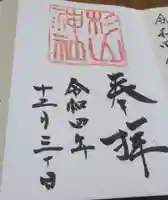 奉拝
杉山
神社
令和四年
十二月三十日
令和四